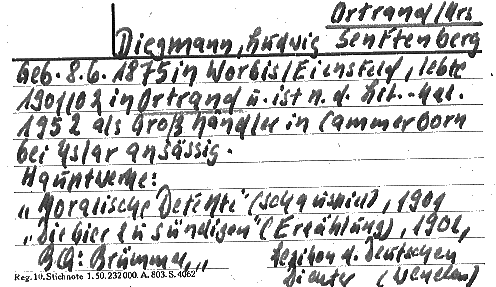 Ortrand/Krs
Diegmann, Ludwig Senftenberg
Geb. 8.6. 1875 in Worbis/Eichsfeld, lebte
1901/02 in Ortrand u. ist n. d. Lit.-Kal.
1952 als Großhändler in Cammerborn
bei Uslar ansässig.
Hauptwerke:
„Moralische Defekte" (Schauspiel), 1901
„Die hier sündigen" (Erzählung), 1902,
BQ: Brümmer, „Lexikon d. Deutschen
Dichter
Reg. 10. Stichnote 1. 50. 232000. A. 803. S. 4062